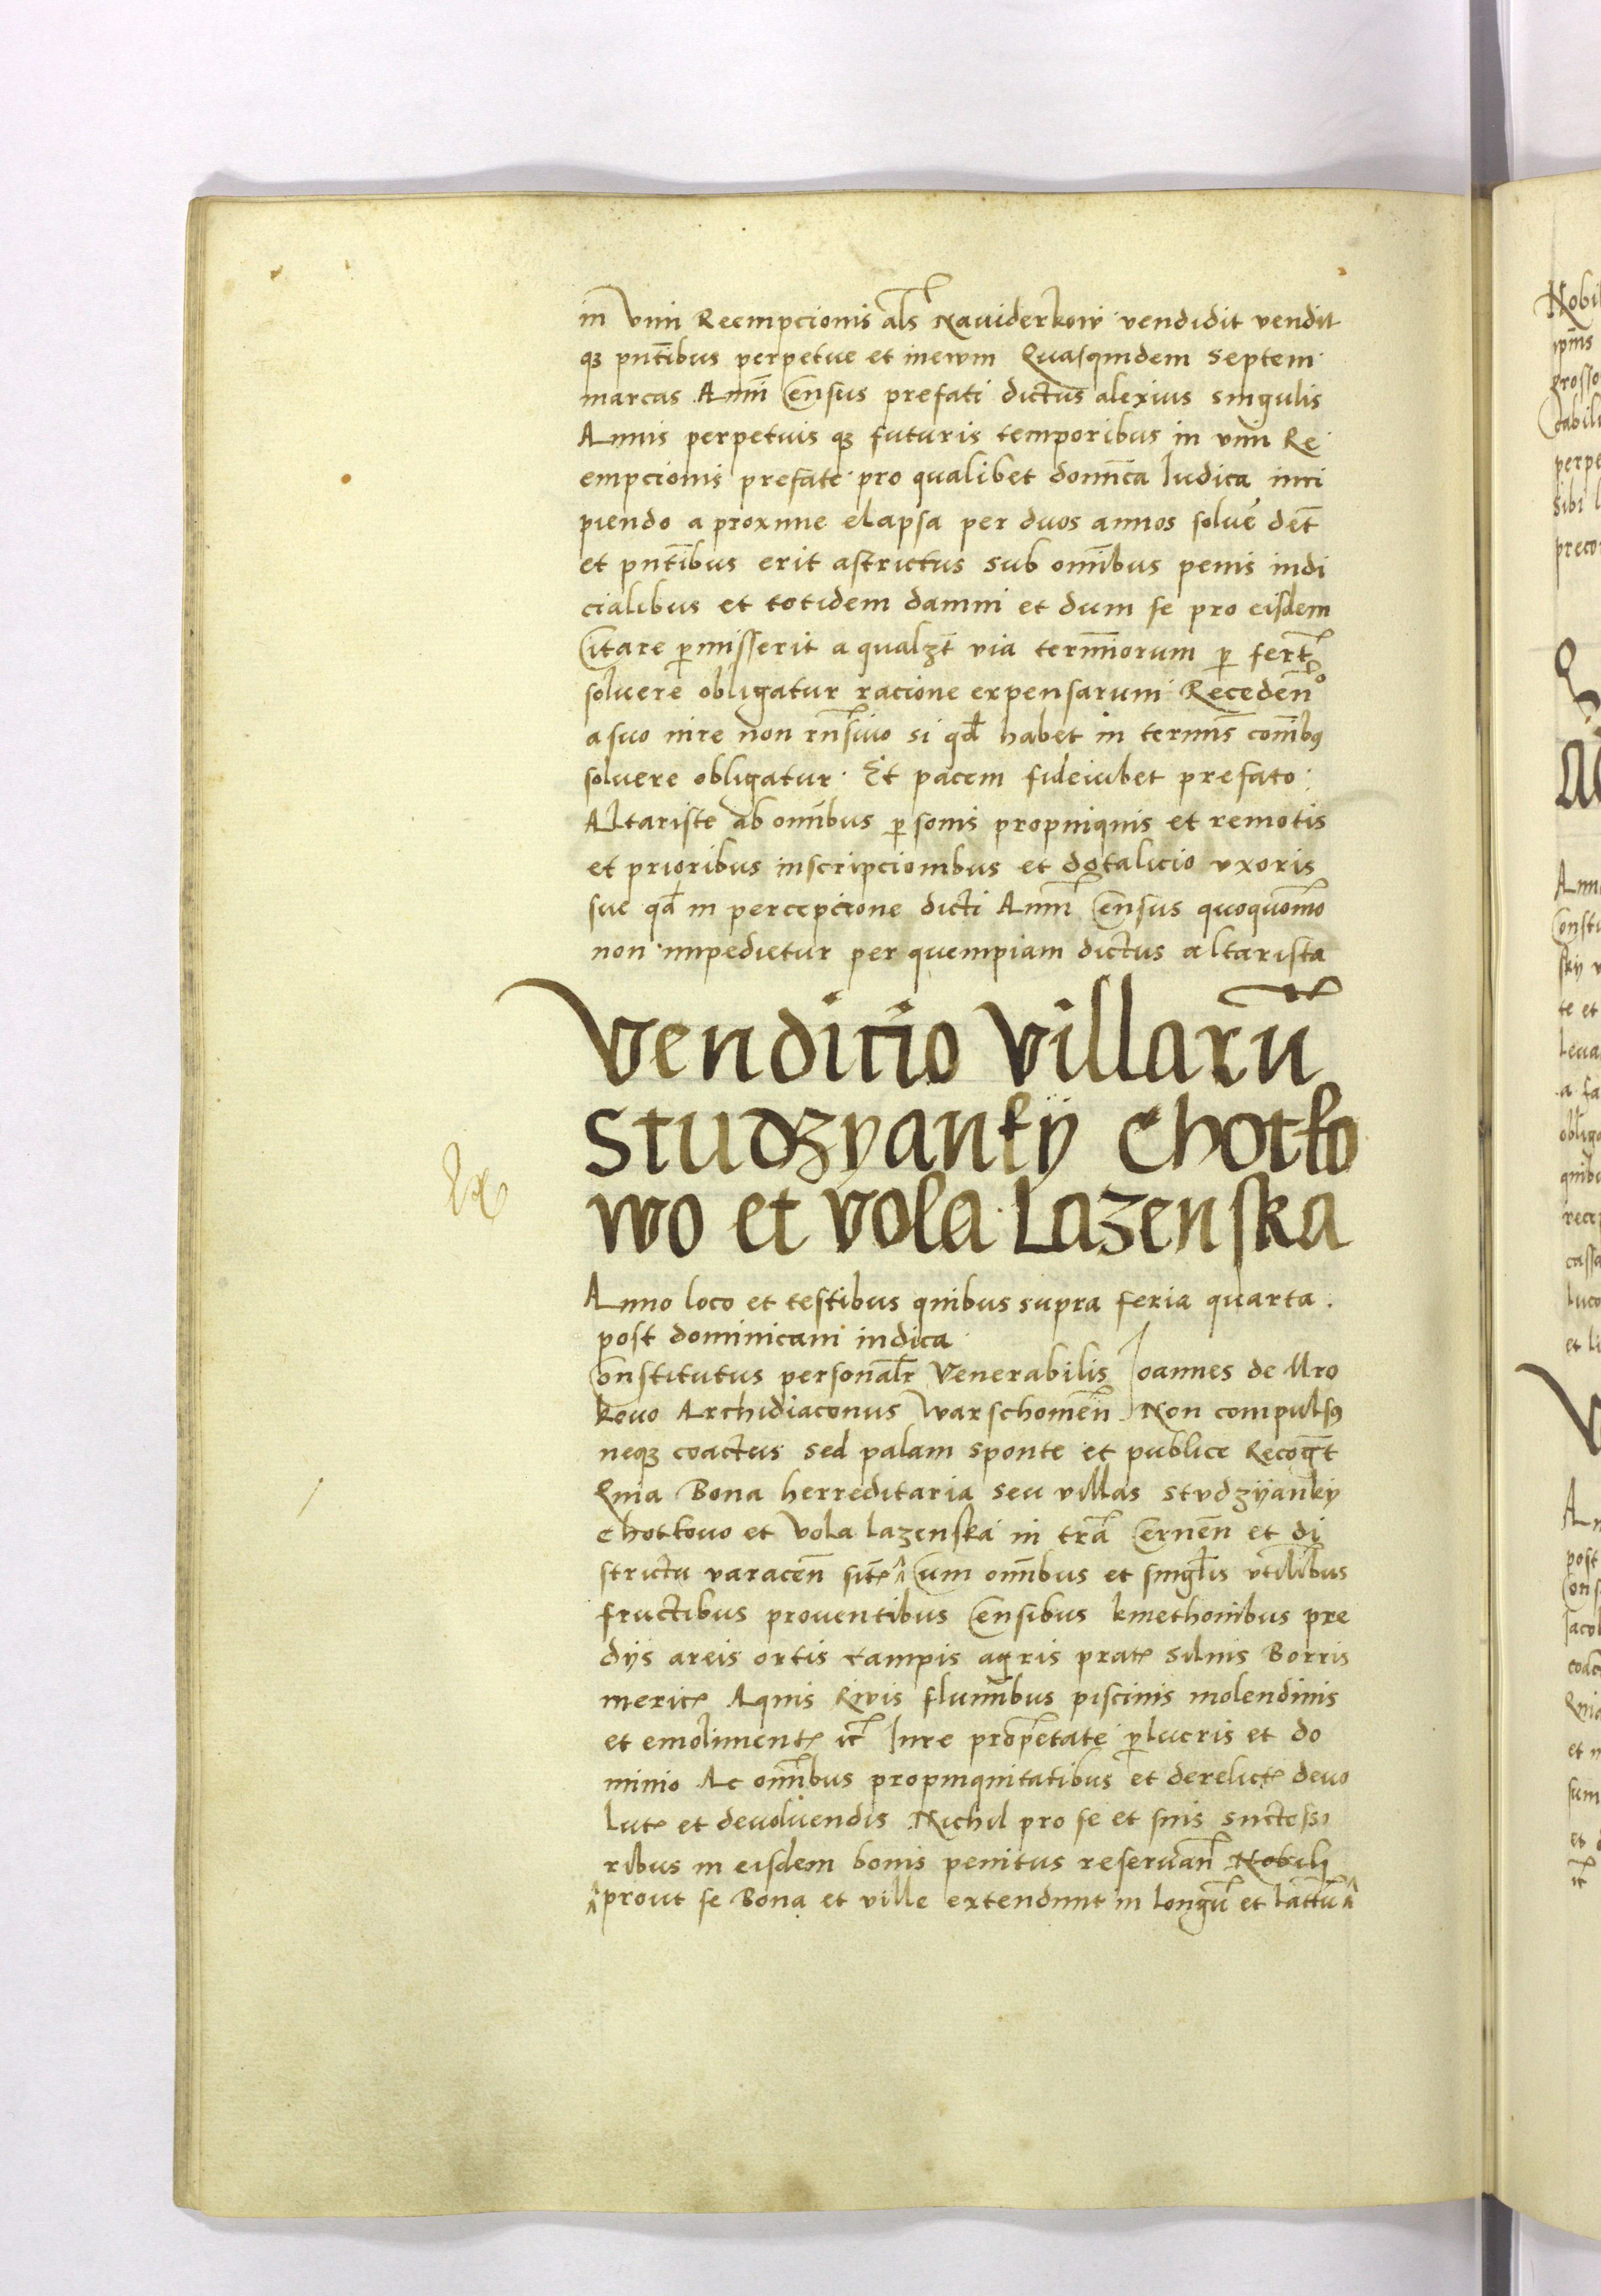 in vim Reempcionis als Naviderkow vendidit vendit
q3 pntibus perpetue et in ewm Quasquidem septem
marcas Anni Census prefati dictus alexius singulis
Annis perpetuis q3 futuris temporibus in vim Re
empcionis prefate pro qualibet dominica Iudica inci
piendo a proxime elapsa per duos annos solue det
et pntibus erit astrictus sub omibus penis iudi
cialibus et totidem damni et dum se pro eisdem
Citare pmisserit a qualzt via terminorum p fert
soluere obligatur racione expensarum Receden
a suo iure non si qd habet in terminis comibus
soluere obligatur. Et pacem fideiubet prefato
Altariste ab omnibus personis propinquis et remotis
et prioribus inscripcionibus et dotalicio vxoris
sue qd in percepcione dicti Annui Census quoquomo
non impedietur per quempiam dictus altarista
Venditio villaru
Studzyanky Chotko
wo et vola Lazenska
Anno loco et testibus quibus supra feria quarta
post dominicam iudica
Constitutus personalr Venerabilis Ioannes de Mro
kovo Archidiaconus Warschomen Non compulsus
neq3 coactus sed palam sponte et publice Recogt
Quia Bona herreditaria seu villas Studzyanky
Chotkovo et Vola lazenska in tra Cernen et di
strictu varacen site Cum omibus et singlis vtilibus
fructibus prouentibus Censibus kmethonibus pre
dys areis ortis campis agris prat siluis Borris
meric Aquis Rivis fluminibus piscinis molendinis
et emoliment ic Iure proprietate plucris et do
minio Ac omnibus propinquitatibus et derelict devo
lut et deuoluendis Nichil pro se et suis successi
ribus in eisdem bonis penitus reseruan Nobili
prout se Bona et ville extendunt in longu et lattu